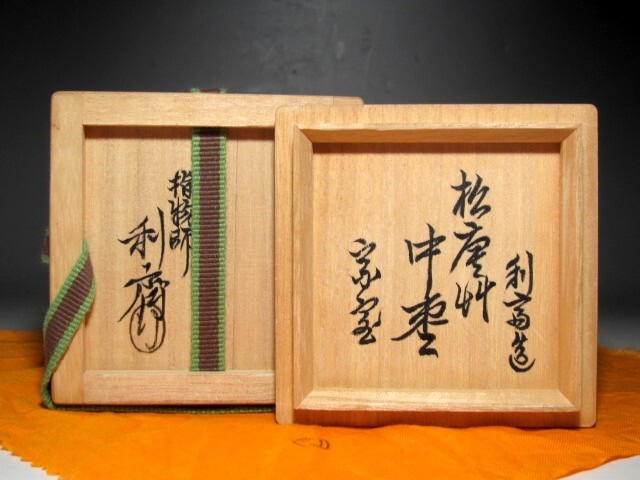 指物師
利齋
利斎造
松唐艸
中棗
宗室